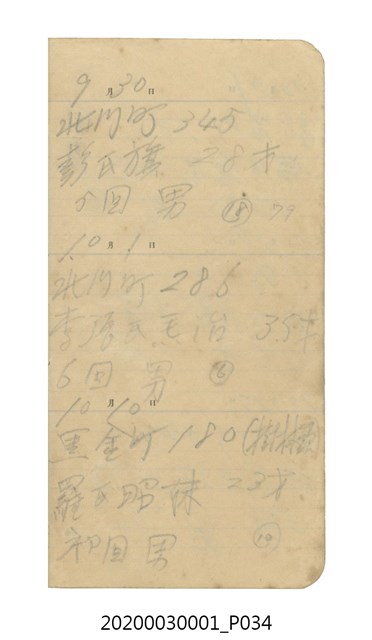 9月30日
北川町 345
彭氏旗 28才
5回 男 ⑱ 79
10月1日
北川町 286
李 氏 治 35才
6回 男 ⑯
10月10日
黒金町 180
羅氏昭妹 23才
初回 男 ⑩
20200030001_P034